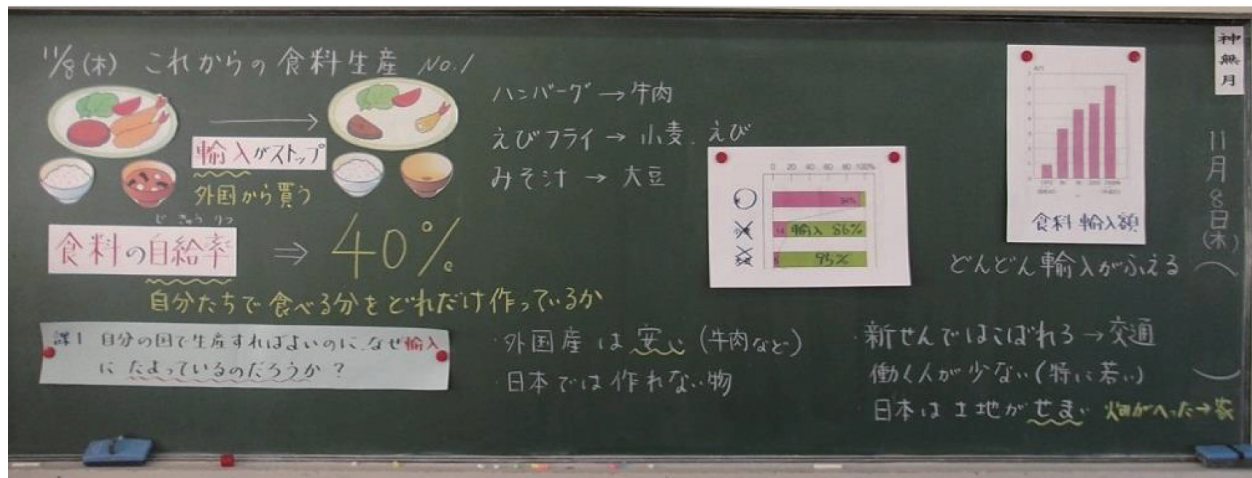 11/8(木) これからの食料生産 No.1
輸入がストップ
外国から買う
食料の自給率
じきゅうりつ
⇒ 40%
自分たちで食べる分をどれだけ作っているか
課1 自分の国で生産すればよいのに、なぜ輸入
に たよっているのだろうか?
ハンバーグ→牛肉
えびフライ→小麦、えび
みそ汁→大豆
0 20 40 60 80 100%
輸入 86%
95%
・外国産は安い(牛肉など)
・日本では作れない物
食料輸入額
どんどん輸入がふえる
新せんではこばれる→交通
働く人が少ない(特に若い)
日本は土地がせまい 畑がへった→家
神無月
11月8日(木)